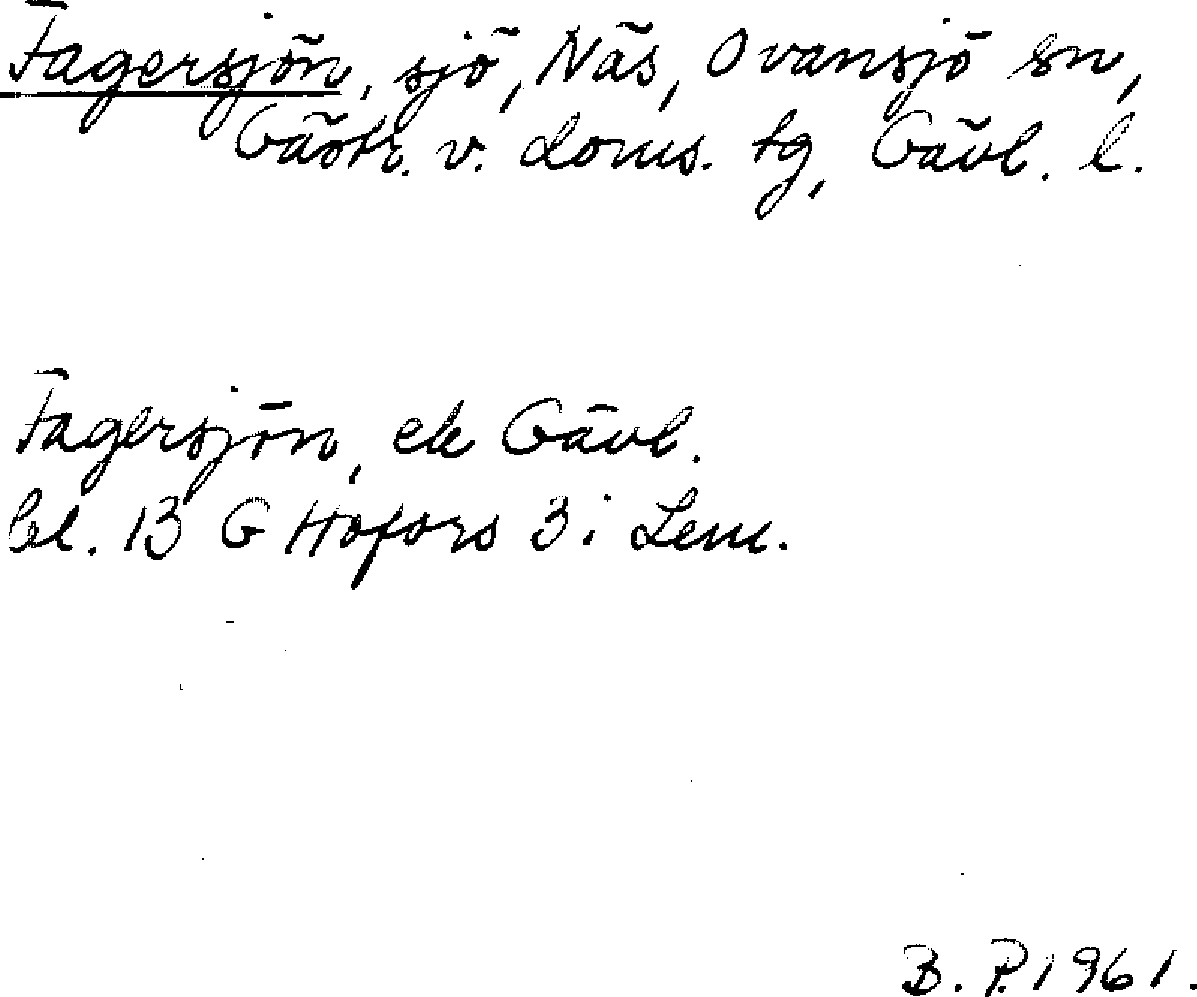 Fagersjön, sjö, Näs, Ovansjö sn,
Gästr. v. doms. tg, Gävl. l.
Fagersjön, ek Gävl.
bl. 13 G Hofors 3 i Lem.
B. P. 1961.